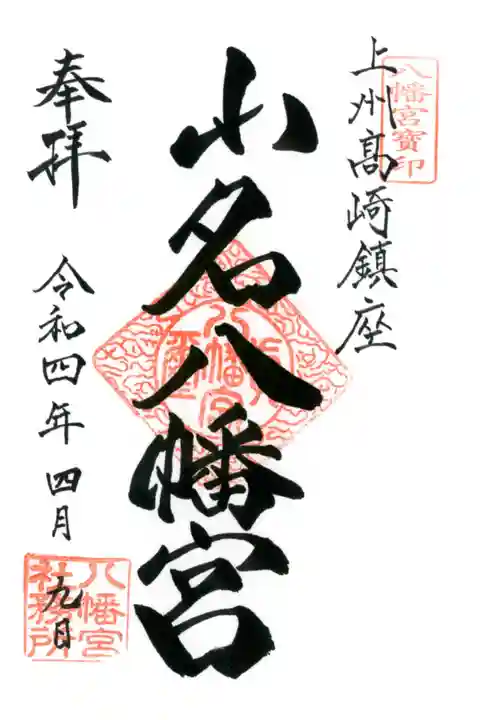 八幡宮寶印
上州髙崎鎮座
山名八幡宮
奉拝
令和四年四月九日
八幡宮
社務所